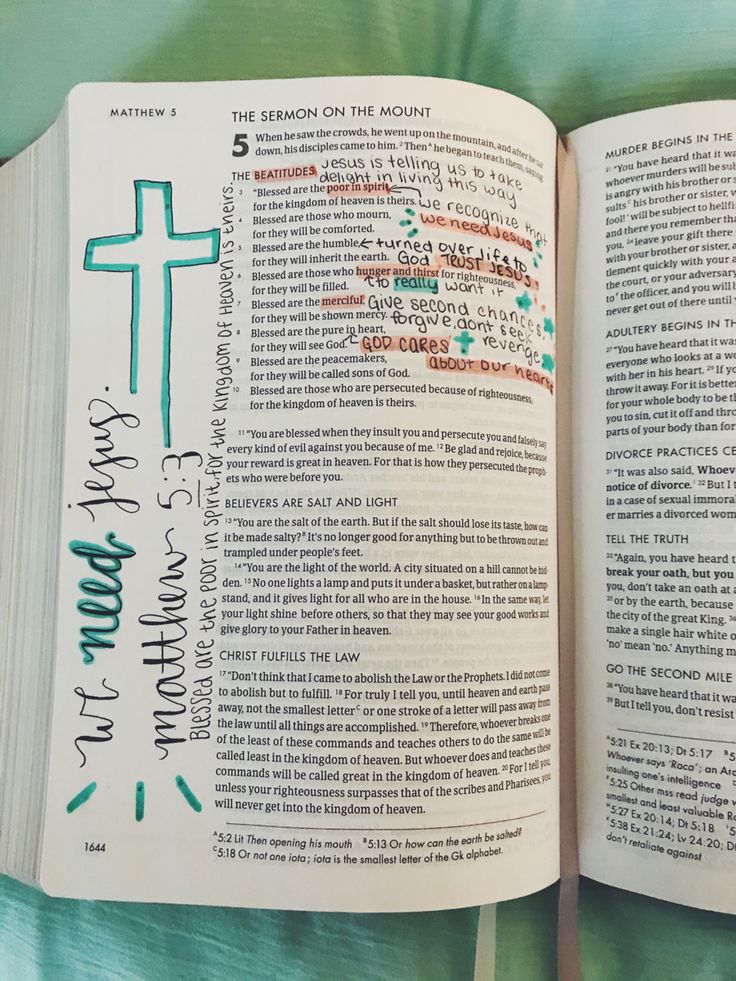 MATTHEW 5
THE SERMON ON THE MOUNT
5 When he saw the crowds, he went up on the mountain, and after he sat
down, his disciples came to him. 2 Then A he began to teach them, saying:
THE BEATITUDES
Jesus is telling us to take
delight in living this way
3 "Blessed are the poor in spirit,
for the kingdom of heaven is theirs.
we recognize that
we need Jesus
4 Blessed are those who mourn,
for they will be comforted.
5 Blessed are the humble,
for they will inherit the earth.
turned over life to
God TRUST JESUS.
6 Blessed are those who hunger and thirst for righteousness,
for they will be filled.
to really want it
7 Blessed are the merciful,
for they will be shown mercy.
Give second chances,
forgive, dont seek
revenge
8 Blessed are the pure in heart,
for they will see God.
GOD CARES
about our hearts
9 Blessed are the peacemakers,
for they will be called sons of God.
10 Blessed are those who are persecuted because of righteousness,
for the kingdom of heaven is theirs.
11 "You are blessed when they insult you and persecute you and falsely say
every kind of evil against you because of me. 12 Be glad and rejoice, because
your reward is great in heaven. For that is how they persecuted the proph-
ets who were before you.
BELIEVERS ARE SALT AND LIGHT
13 "You are the salt of the earth. But if the salt should lose its taste, how can
it be made salty? B It's no longer good for anything but to be thrown out and
trampled under people's feet.
14 "You are the light of the world. A city situated on a hill cannot be hid-
den. 15 No one lights a lamp and puts it under a basket, but rather on a lamp-
stand, and it gives light for all who are in the house. 16 In the same way, let
your light shine before others, so that they may see your good works and
give glory to your Father in heaven.
CHRIST FULFILLS THE LAW
17 "Don't think that I came to abolish the Law or the Prophets. I did not come
to abolish but to fulfill. 18 For truly I tell you, until heaven and earth pass
away, not the smallest letter C or one stroke of a letter will pass away from
the law until all things are accomplished. 19 Therefore, whoever breaks one
of the least of these commands and teaches others to do the same will be
called least in the kingdom of heaven. But whoever does and teaches these
commands will be called great in the kingdom of heaven. 20 For I tell you,
unless your righteousness surpasses that of the scribes and Pharisees, you
will never get into the kingdom of heaven.
A 5:2 Lit Then opening his mouth B 5:13 Or how can the earth be salted?
C 5:18 Or not one iota; iota is the smallest letter of the Gk alphabet.
1644
we need jesus.
matthew 5:3
Blessed are the poor in spirit, for the kingdom of heaven is theirs.
MURDER BEGINS IN THE
21 "You have heard that it wa
whoever murders will be sub
is angry with his brother or s
sults C his brother or sister, w
fool!' will be subject to hellfi
and there you remember tha
you, 24 leave your gift there
with your brother or sister, a
tlement quickly with your a
the court, or your adversary
to F the officer, and you will b
never get out of there until
ADULTERY BEGINS IN TH
27 "You have heard that it was
everyone who looks at a wo
with her in his heart. 29 If yo
throw it away. For it is better
for your whole body to be th
you to sin, cut it off and thro
parts of your body than for
DIVORCE PRACTICES CE
31 "It was also said, Whoev
notice of divorce. I 32 But I t
in a case of sexual immoral
er marries a divorced wom
TELL THE TRUTH
33 "Again, you have heard t
break your oath, but you
you, don't take an oath at a
35 or by the earth, because
the city of the great King. 36
make a single hair white o
'no' mean 'no.' Anything m
GO THE SECOND MILE
38 "You have heard that it wa
39 But I tell you, don't resist
A 5:21 Ex 20:13; Dt 5:17 B 5
Whoever says 'Raca'; an Ar
insulting one's intelligence
E 5:25 Other mss read judge w
smallest and least valuable Ro
G 5:27 Ex 20:14; Dt 5:18 5
K 5:38 Ex 21:24; Lv 24:20; Dt
don't retaliate against